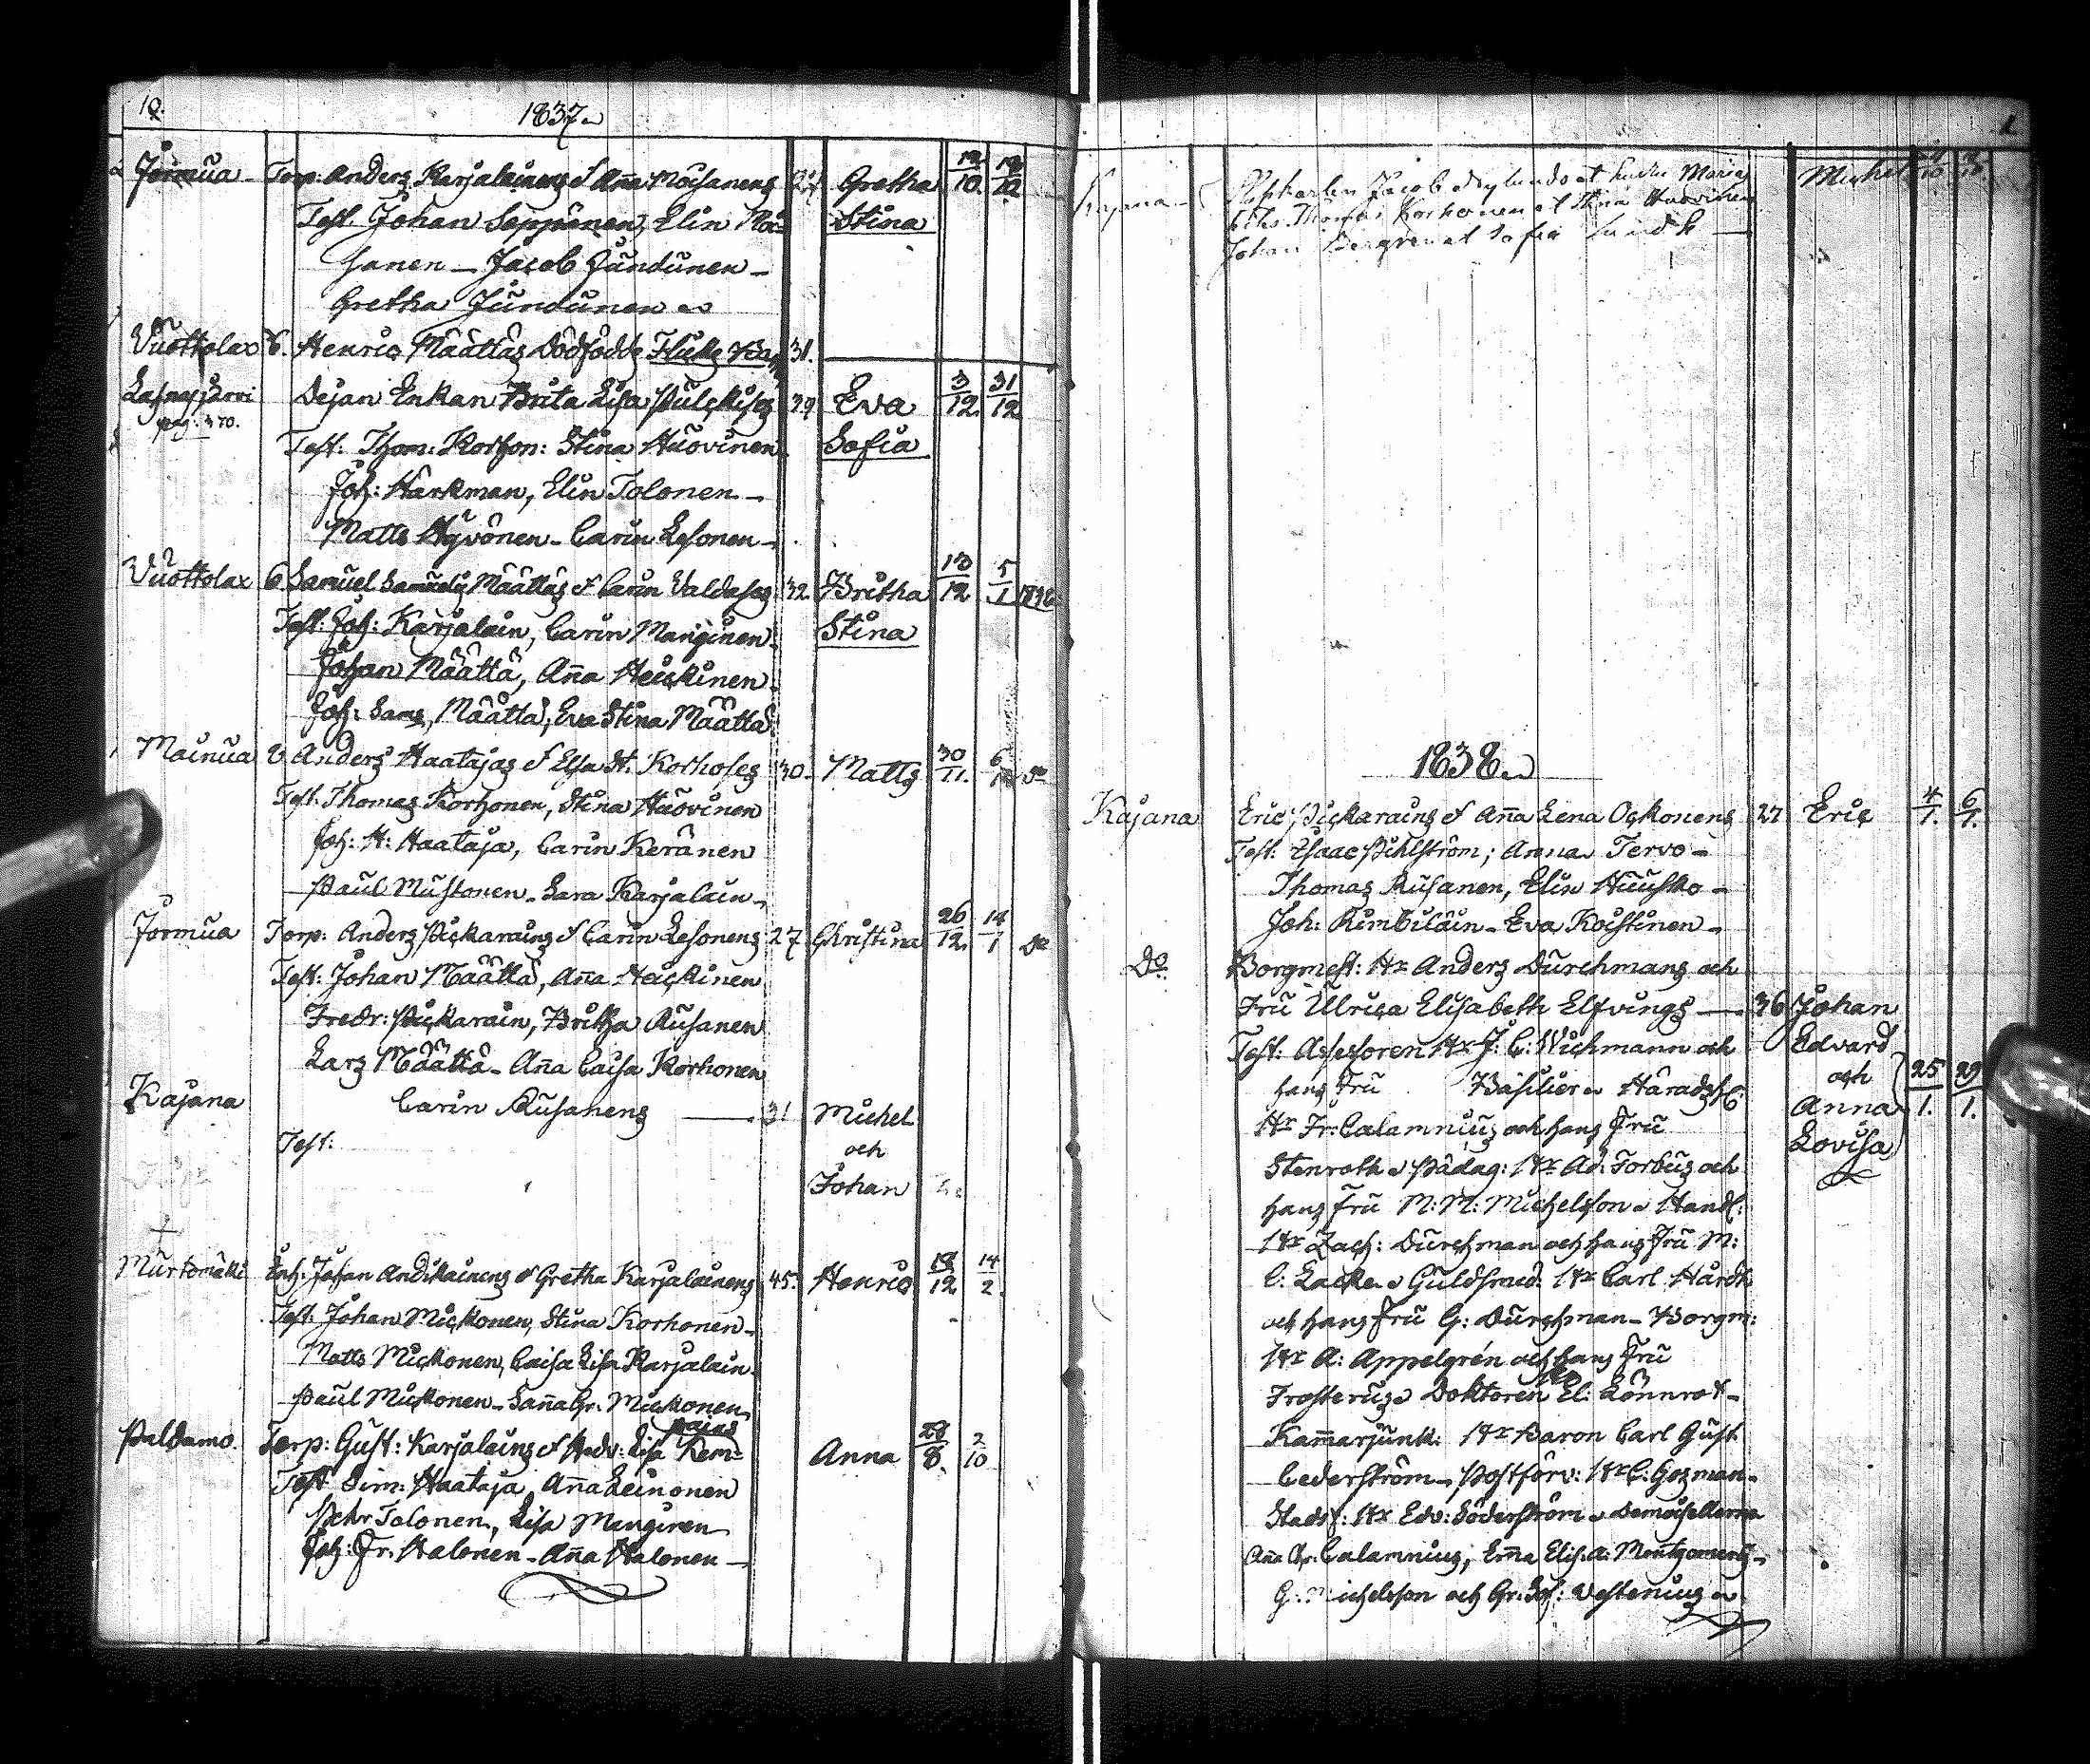 10.
1837
Jormua Torp: Anders Karjalainens & Anna Moisanens Gretha 12/10
Test. Johan Seppänen, Elin Moi-
sanen Jacob Jundunen
Stina
Gretha Jundunen
Vuottolax 6. Henric Määttäs Dödfödde 31.
Dejan Enkan Brita Lisa Pulckises 39 Eva 3/12 31/12
pag: 370.
Test: Thom: Korhon: Stina Huovinen Sofia
Joh: Harkman, Elin Tolonen
Matts Hyvönen Carin Lesonen
Vuottolax 6 Samuel Määttäs & Carin 32 Britha 5/1
Test: Joh: Karjalain, Carin Manginen Stina
Johan Määttä, Anna Heickinen
Joh: Sams, Määttä, Eva Stina Määttä
Mainua Anders Haatajas & Elsa St. Korhoses 30. Matts 30/11. 6/1 Do
Test. Thomas Korhonen, Stina Huovinen
Joh: H: Haataja, Carin Keränen
Paul Mustonen Sara Karjalain
Jormua Torp: Anders Pickarains & Carin Lesonens 27 Christina 26/12. 14/1 Do
Test: Johan Määttä, Anna Heickinen
Fredr: Pickarain, Britha Rusanen
Lars Määttä Anna Caisa Korhonen
Kajana
Carin Rusanens 31 Michel
Test: och
Johan
Murtomäki Inh: Johan Andikainens & Gretha Karjalainens 45. Henric 12 14/2
Test: Johan Mickonen, Stina Korhonen
Matts Mickonen, Caisa Lisa Karjalain
Paul Mickonen Sanna Gr. Mickonen
Paldamo. Torp: Gust: Karjalains & Hedv: Lisa Kem- pais Anna 28/8. 2/10
Test Sim: Haataja, Anna Leinonen
Petr Tolonen, Lisa Manginen
Joh: Fr. Halonen Anna Halonen
1
Kajana Jacob Nylunds et Maria Michel
Thomas Korhonen et Stina Huovinen
Johan Bergren et Sofia
1838
Kajana Eric Pickarains & Anna Lena Ockonens 27 Eric 4/1. 6/1.
Test: Isaac Pihlström; Anna Tervo
Thomas Rusanen, Elin Huusko
Joh: Kimbiläin Eva Koistinen
Do. Borgmest: Hr Anders Durchmans och
Fru Ulrica Elisabeth Elfvings 36 Johan
Test: Assessoren Hr J: C: Wichmann och Edvard
hans Fru Basilier Häradshöf: och 25/1. 29/1.
Anna
Hr Fr: Calamnius och hans Fru
Lovisa
Stenroth Pädag: Hr Ad: Forbus och
hans Fru M: M: Michelsson Handl:
Hr Zach: Durchman och hans Fru M:
C: Lacke Guldsmed. Hr Carl Hårdh
och hans Fru G: Durchman Borgm:
Hr A: Appelgrén och hans Fru
Frosterus Doktoren Hr El: Lönnrot
Kammarjunk: Hr Baron Carl Gust
Cederström Postförv: Hr C: Gozman
Stadsf: Hr Edv: Söderström Demoisellerna
Anna Chr: Calamnius, Emma Elis: A: Montgomery
G: Michelsson och Gr: Sof: Westenius